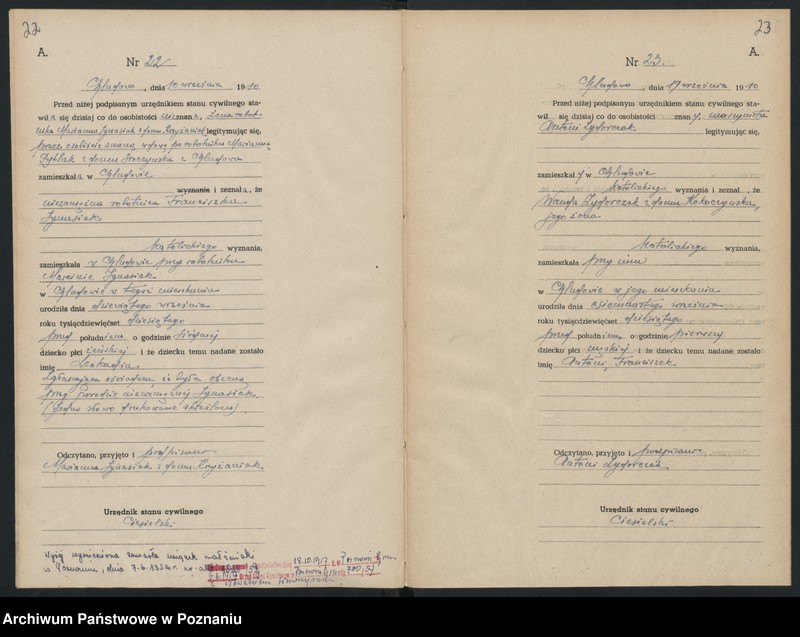 22
A.
Nr 22
Chludowo, dnia 10 września 1910
Przed niżej podpisanym urzędnikiem stanu cywilnego sta-
wiła się dzisiaj co do osobistości nieznana, żona robot-
nika Marianna Ignasiak z domu Krzyżaniak legitymując się,
przez osobiście znaną wdowę po robotniku Mariannę
z domu z Chludowa
zamieszkała w Chludowie
wyznania i zeznała, że
niezamężna robotnica Franciszka
Ignasiak
katolickiego wyznania,
zamieszkała w Chludowie przy robotniku
Marcinie Ignasiak
w Chludowie w tegoż mieszkaniu
urodziła dnia dziewiątego września
roku tysiącdziewięćset dziesiątego
przed południem o godzinie
dziecko płci żeńskiej i że dziecku temu nadane zostało
imię Leokadja
Zgłaszająca oświadczyła, iż była obecną
przy porodzie niezamężnej Ignasiak.
(Jedno słowo drukowane skreślono).
Odczytano, przyjęto i podpisano
Marianna Ignasiak z domu Krzyżaniak
Urzędnik stanu cywilnego
Ciesielski
Wyżej wymieniona zawarła związek małżeński
w Poznaniu, dnia 7.6.1954r. nr aktu
18.10.1917
23
A.
Nr 23.
Chludowo, dnia 17 września 1910
Przed niżej podpisanym urzędnikiem stanu cywilnego sta-
wił się dzisiaj co do osobistości znany, maszynista
Antoni legitymując się,
zamieszkały w Chludowie
katolickiego wyznania i zeznał, że
Wanda z domu
jego żona
katolickiego wyznania,
zamieszkała przy nim
w Chludowie w jego mieszkaniu
urodziła dnia osiemnastego września
roku tysiącdziewięćset dziesiątego
przed południem o godzinie pierwszej
dziecko płci męskiej i że dziecku temu nadane zostało
imię Antoni, Franciszek.
Odczytano, przyjęto i podpisano
Antoni
Urzędnik stanu cywilnego
Ciesielski
Archiwum Państwowe w Poznaniu